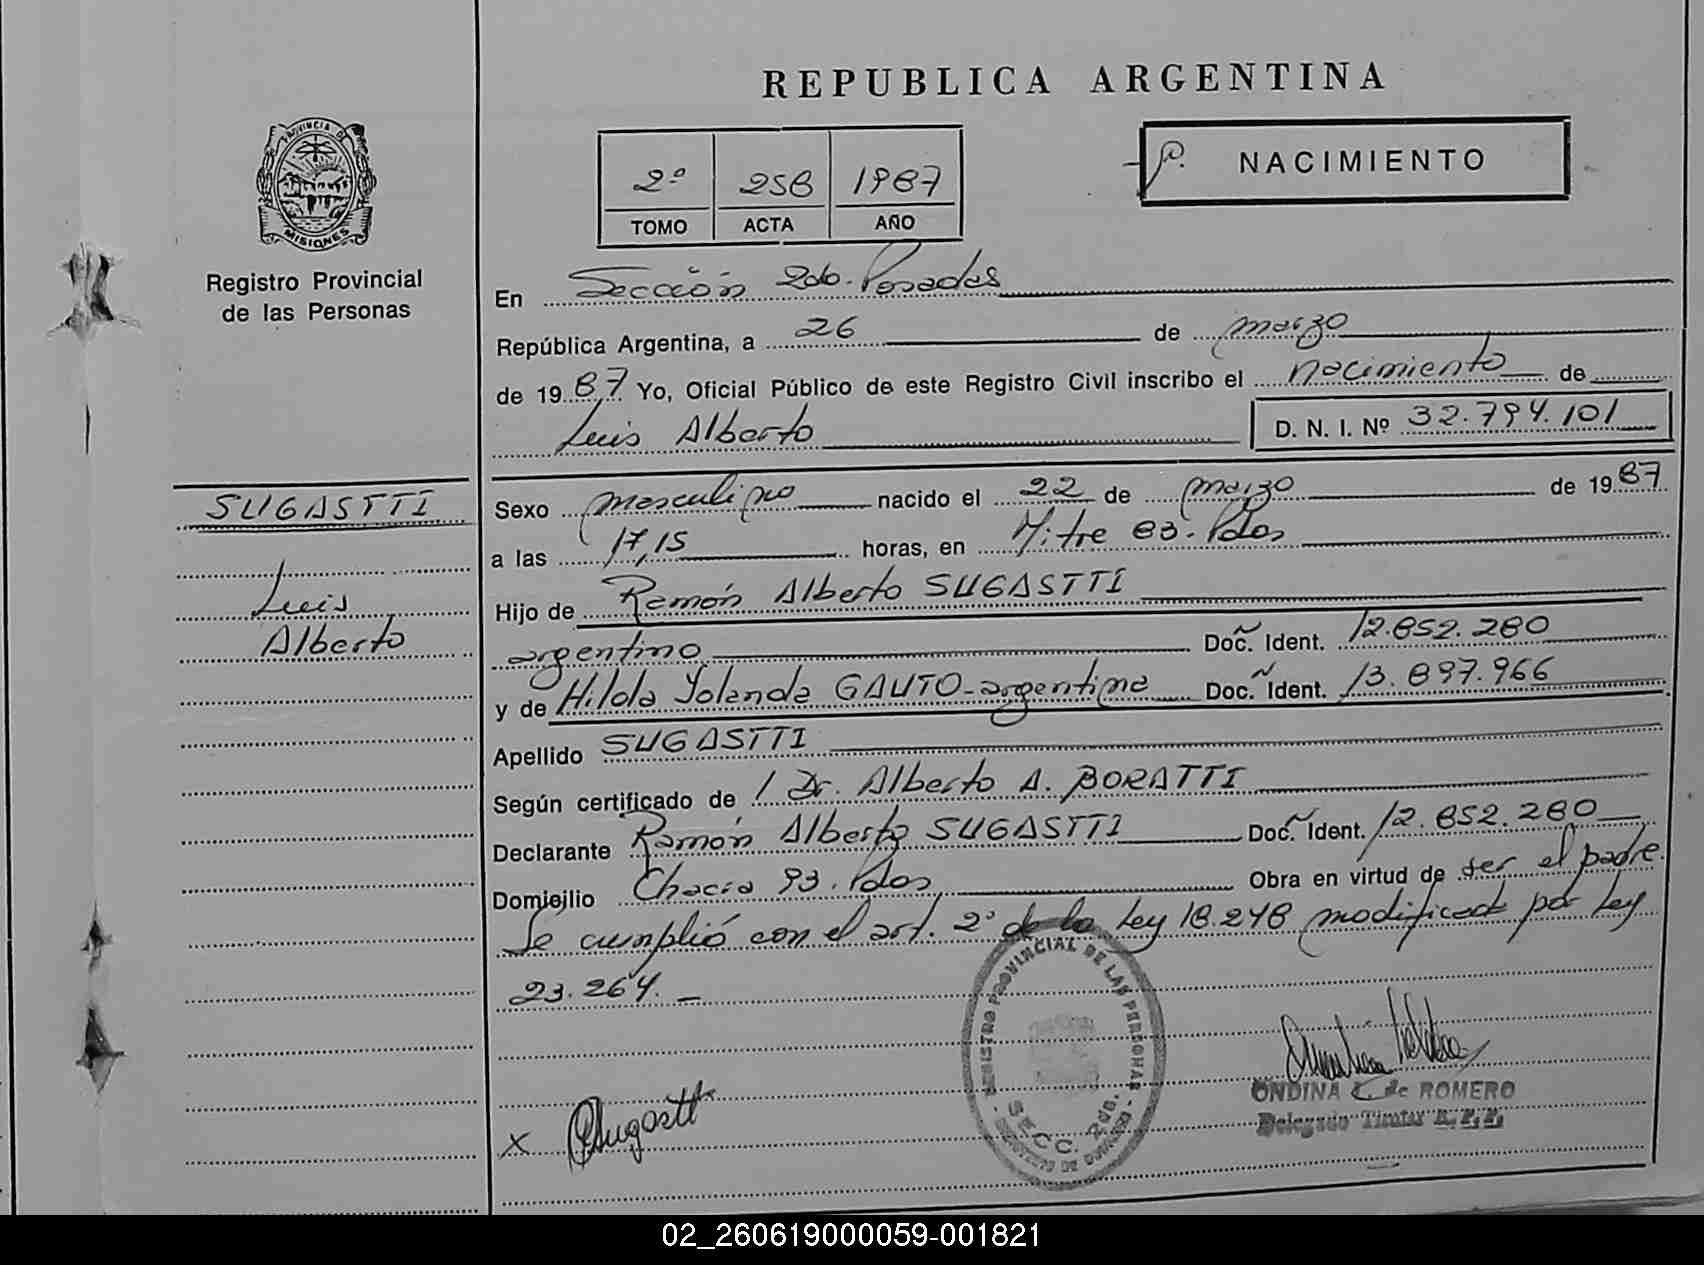 REPUBLICA ARGENTINA
PROVINCIA DE
MISIONES
Registro Provincial
de las Personas
2º 258 1987
TOMO ACTA AÑO
NACIMIENTO
En Sección 2da. Posadas
República Argentina, a 26 de marzo
de 1987 Yo, Oficial Público de este Registro Civil inscribo el nacimiento de
Luis Alberto D. N. I. Nº 32.794.101
SUGASTTI
Luis
Alberto
Sexo masculino nacido el 22 de marzo de 1987
a las 17,15 horas, en Mitre 83. Pdas
Hijo de Ramón Alberto SUGASTTI
argentino Doc. Ident. 12.852.280
y de Hilda Yolanda GAUTO-argentina Doc. Ident. 13.897.966
Apellido SUGASTTI
Según certificado de / Dr. Alberto A. BORATTI
Declarante Ramón Alberto SUGASTTI Doc. Ident. 12.852.280
Domicilio Chacra 93. Pdas Obra en virtud de ser el padre.
Se cumplió con el art. 2º de la Ley 18.248 modificado por Ley
23.264. _
REGISTRO PROVINCIAL DE LAS PERSONAS
SECC. 2da.
x
ONDINA de ROMERO
Delegado Titular
02_260619000059-001821